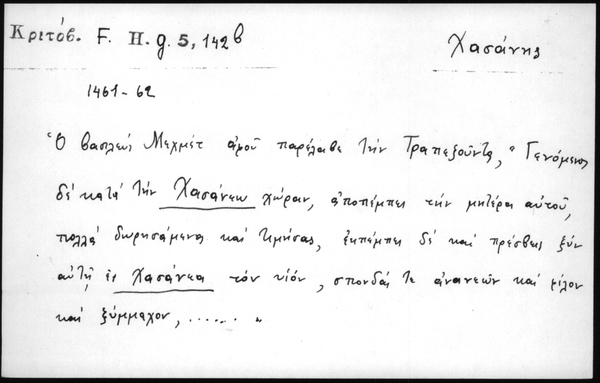 Κριτόβ. F. H. g. 5, 142b
Χασάνης
1461-62
Ὁ βασιλεύς Μεχμέτ ἀφοῦ παρέλαβε τήν Τραπεζοῦντα, " Γενόμενος
δέ κατά τήν Χασάνεω χώραν, ἀποπέμπει τήν μητέρα αὐτοῦ,
πολλά δωρησάμενος καί τιμήσας, ἐκπέμπει δέ καί πρέσβεις ξύν
αὐτῇ ἐς Χασάνεα τόν υἱόν, σπονδάς τε ἀνανεῶν καί φίλον
καί ξύμμαχον, ...... "